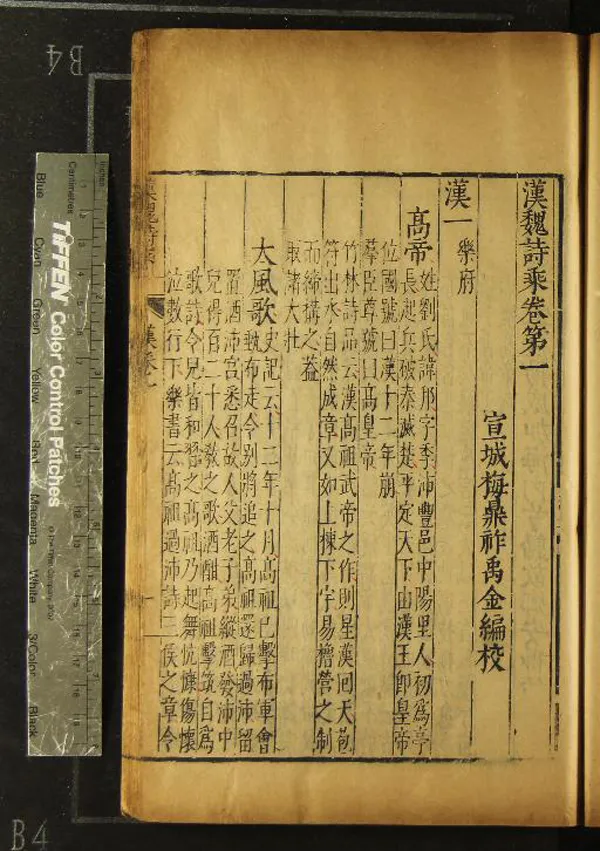 漢魏詩乘卷第一
宣城梅鼎祚禹金編校
漢一 樂府
高帝
姓劉氏諱邦字季沛豐邑中陽里人初為亭
長起兵破秦滅楚平定天下由漢王即皇帝
位國號曰漢十二年崩
羣臣尊號曰高皇帝
竹林詩品云漢高祖武帝之作則星漢回天苞
符出水自然成章又如上棟下宇易檐營之制
而締搆之益
取諸大壯
大風歌
史記云十二年十月高祖已擊布軍會
甀布走令別將追之高祖還歸過沛留
置酒沛宮悉召故人父老子弟縱酒發沛中
兒得百二十人教之歌酒酣高祖擊筑自為
歌詩令兒皆和習之高祖乃起舞忼慷傷懷
泣數行下樂書云高祖過沛詩三侯之章令
漢魏詩乘
漢卷一
一
B4
B4
TIFFEN Color Control Patches
© The Tiffen Company, 2000
Inches
Centimetres
Blue
Cyan
Green
Yellow
Red
Magenta
White
3/Color
Black